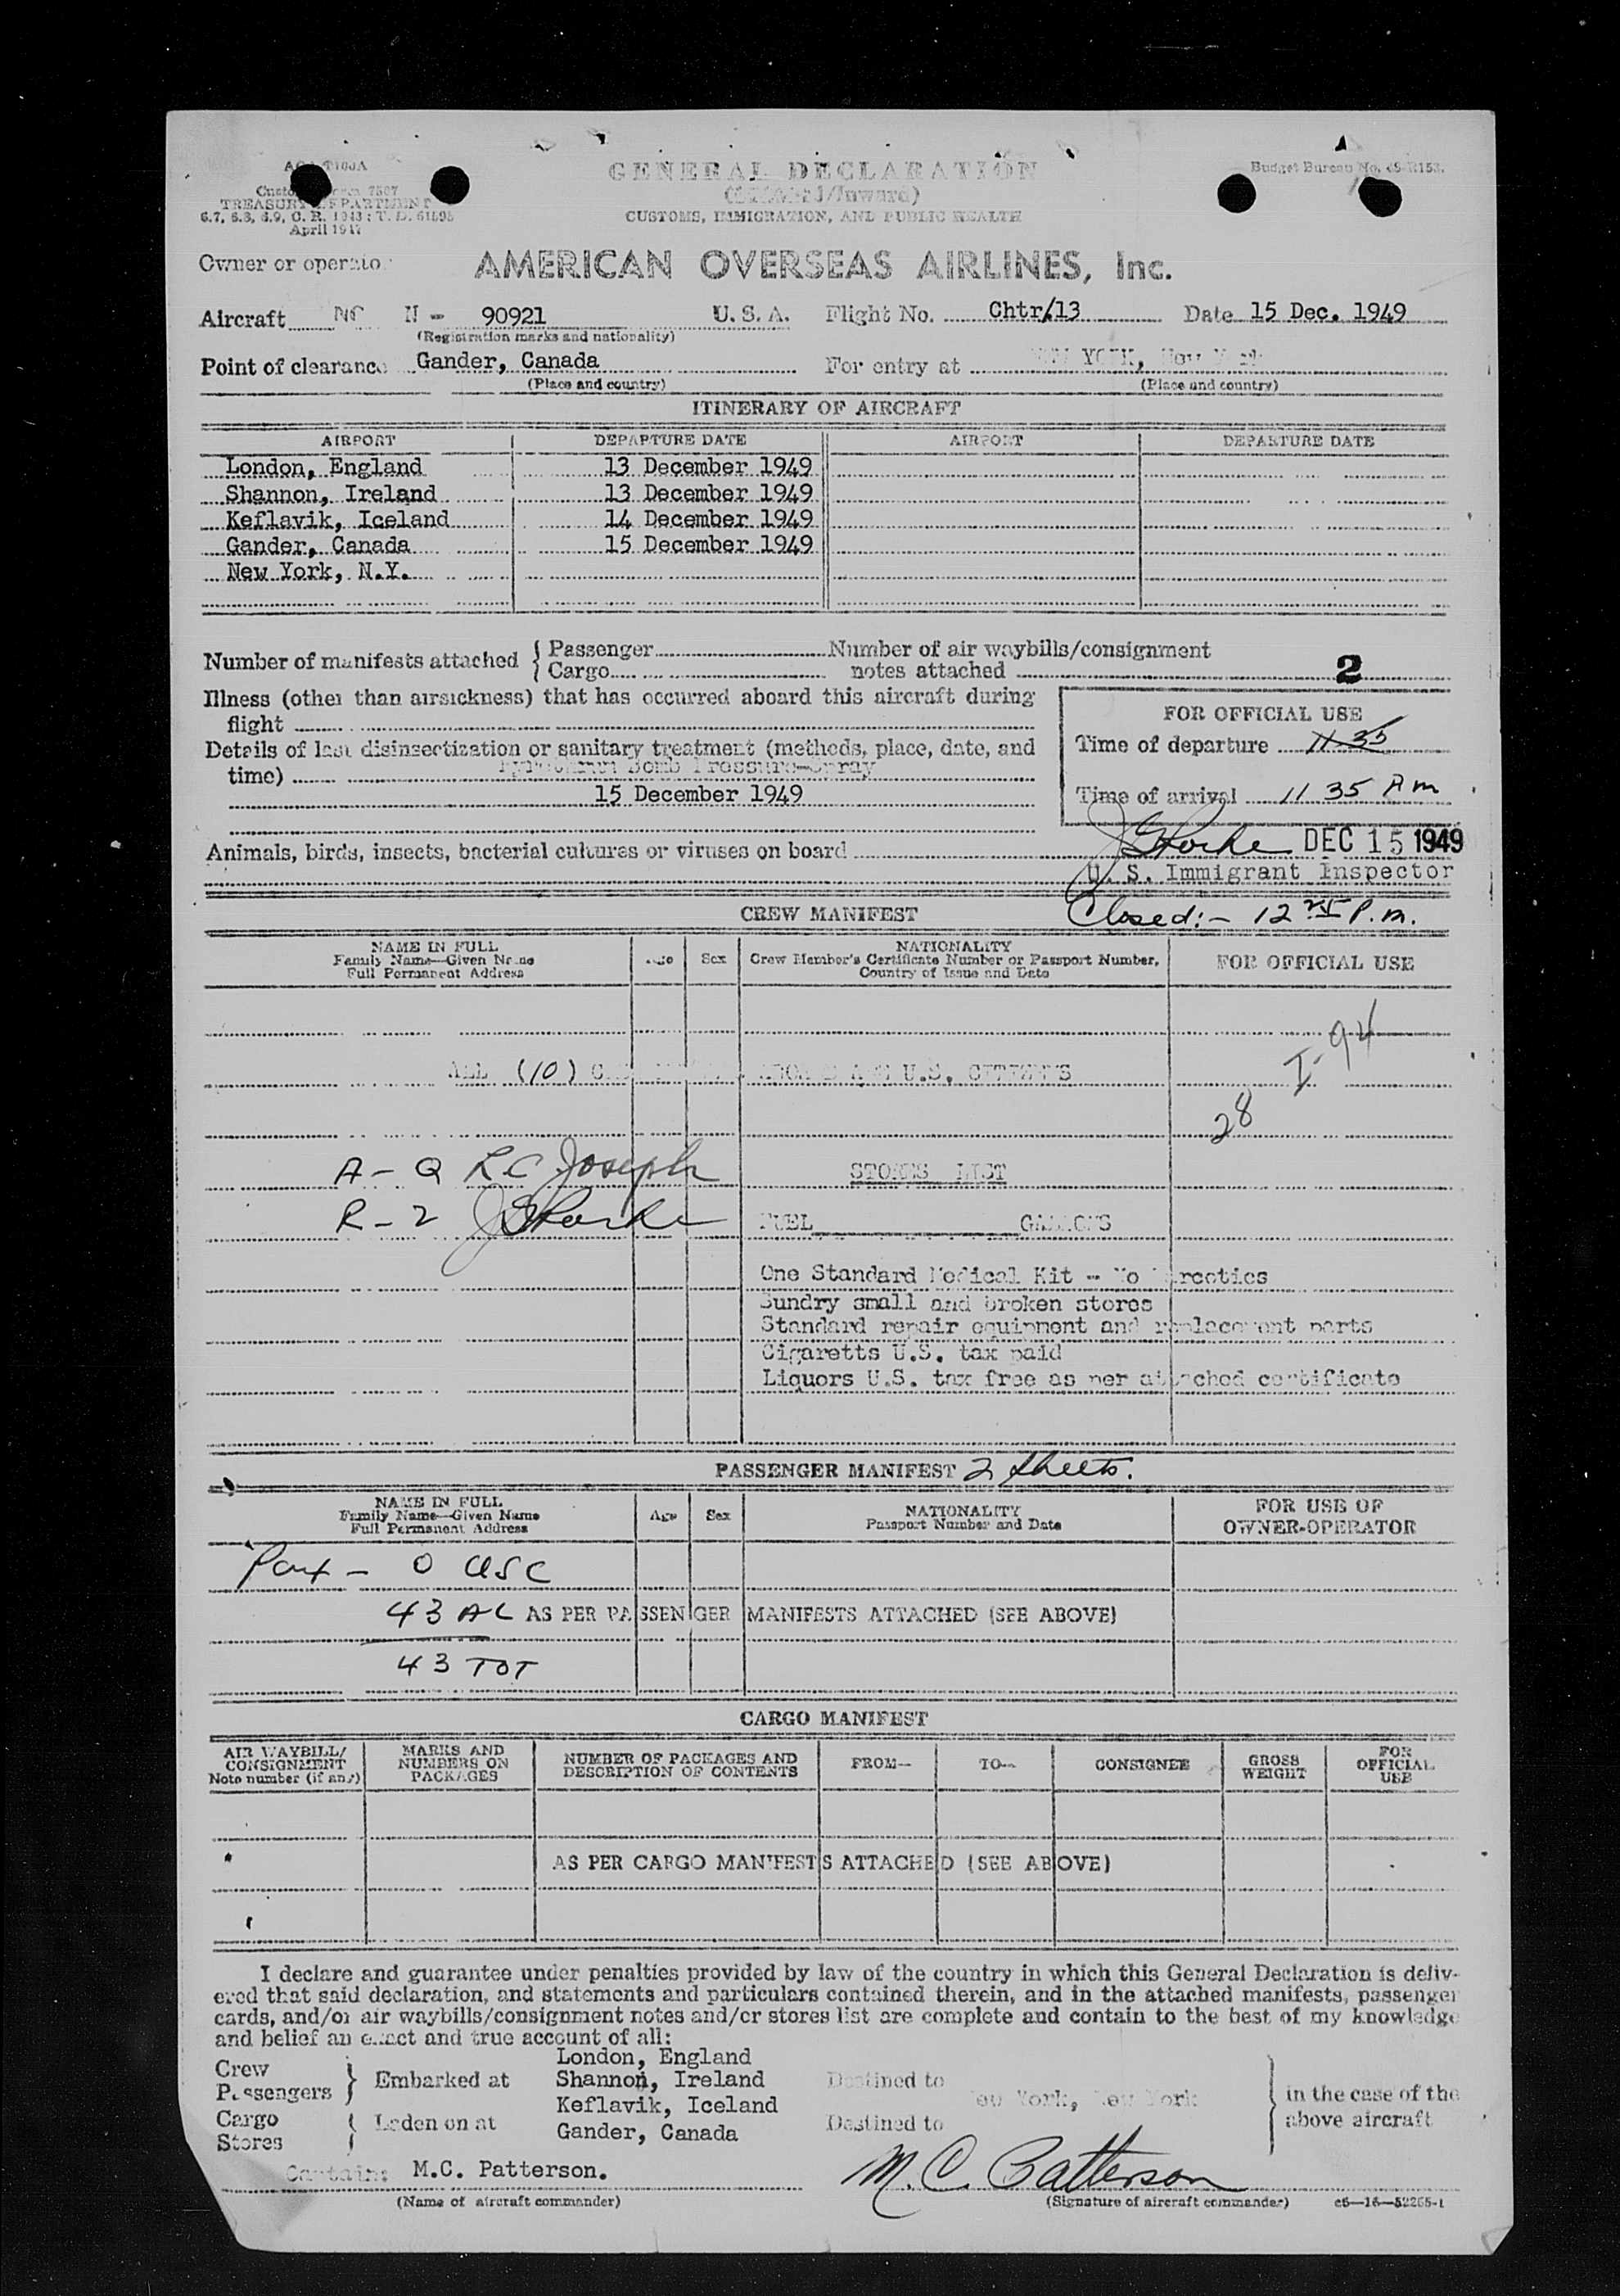 GENERAL DECLARATION
Budget Bureau No.
(Inward)
TREASURY DEPARTMENT
CUSTOMS, IMMIGRATION, AND PUBLIC HEALTH
April 1947
Owner or operator AMERICAN OVERSEAS AIRLINES, Inc.
Aircraft NC N - 90921 U. S. A. Flight No. Chtr/13 Date 15 Dec. 1949
(Registration marks and nationality)
Point of clearance Gander, Canada For entry at NEW YORK, New York
(Place and country) (Place and country)
ITINERARY OF AIRCRAFT
AIRPORT DEPARTURE DATE AIRPORT DEPARTURE DATE
London, England 13 December 1949
Shannon, Ireland 13 December 1949
Keflavik, Iceland 14 December 1949
Gander, Canada 15 December 1949
New York, N.Y.
Number of manifests attached { Passenger Number of air waybills/consignment
Cargo notes attached 2
Illness (other than airsickness) that has occurred aboard this aircraft during
flight
FOR OFFICIAL USE
Time of departure 11 35
Details of last disinsectization or sanitary treatment (methods, place, date, and
time) Bomb Pressure-Spray
15 December 1949
Time of arrival 11 35 Am
DEC 15 1949
Animals, birds, insects, bacterial cultures or viruses on board
U. S. Immigrant Inspector
CREW MANIFEST
Closed:- 12 25 P.m.
NAME IN FULL
Family Name—Given Name
Full Permanent Address
Age Sex
NATIONALITY
Crew Member's Certificate Number or Passport Number,
Country of Issue and Date
FOR OFFICIAL USE
I-94
ALL (10) U.S. CITIZENS
28
A - Q R C Joseph
STORES LIST
R - 2
FUEL GALLONS
One Standard Medical Kit - No Narcotics
Sundry small and broken stores
Standard repair equipment and replacement parts
Cigaretts U.S. tax paid
Liquors U.S. tax free as per attached certificate
PASSENGER MANIFEST 2 sheets.
NAME IN FULL
Family Name—Given Name
Full Permanent Address
Age Sex
NATIONALITY
Passport Number and Date
FOR USE OF
OWNER-OPERATOR
Pax - 0 USC
43 AL AS PER PASSENGER MANIFESTS ATTACHED (SEE ABOVE)
43 TOT
CARGO MANIFEST
AIR WAYBILL/
CONSIGNMENT
Note number (if any)
MARKS AND
NUMBERS ON
PACKAGES
NUMBER OF PACKAGES AND
DESCRIPTION OF CONTENTS
FROM—
TO—
CONSIGNEE
GROSS
WEIGHT
FOR
OFFICIAL
USE
AS PER CARGO MANIFESTS ATTACHED (SEE ABOVE)
I declare and guarantee under penalties provided by law of the country in which this General Declaration is deliv-
ered that said declaration, and statements and particulars contained therein, and in the attached manifests, passenger
cards, and/or air waybills/consignment notes and/or stores list are complete and contain to the best of my knowledge
and belief an exact and true account of all:
Crew
Passengers } Embarked at
Cargo
Stores { Laden on at
London, England
Shannon, Ireland
Keflavik, Iceland
Gander, Canada
Destined to
New York, New York
Destined to
in the case of the
above aircraft
Captain: M.C. Patterson.
M. C. Patterson
(Name of aircraft commander) (Signature of aircraft commander) c5—16—52255-1